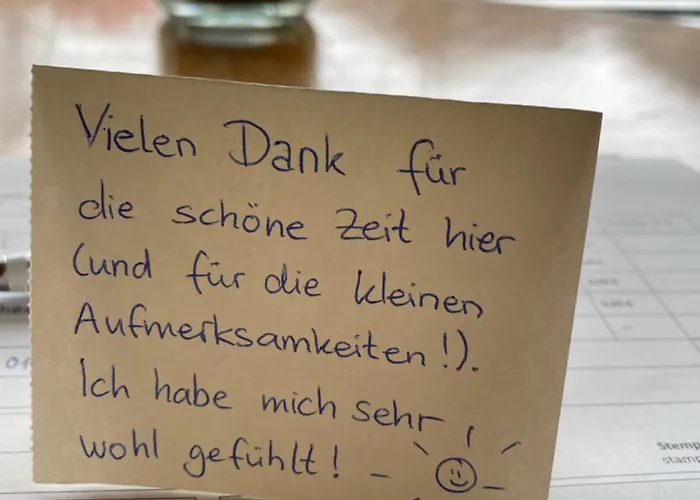 Vielen Dank für
die schöne Zeit hier
(und für die kleinen
Aufmerksamkeiten!).
Ich habe mich sehr
wohl gefühlt!
Stemp
stamp